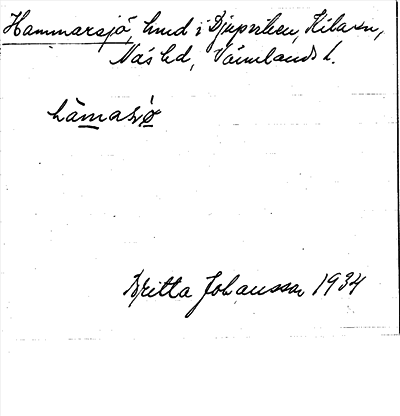 Hammarsjö, hmd i Djupviken, Kila sn,
Näs hd, Värmlands l.
hàmaʂø
Britta Johansson 1934